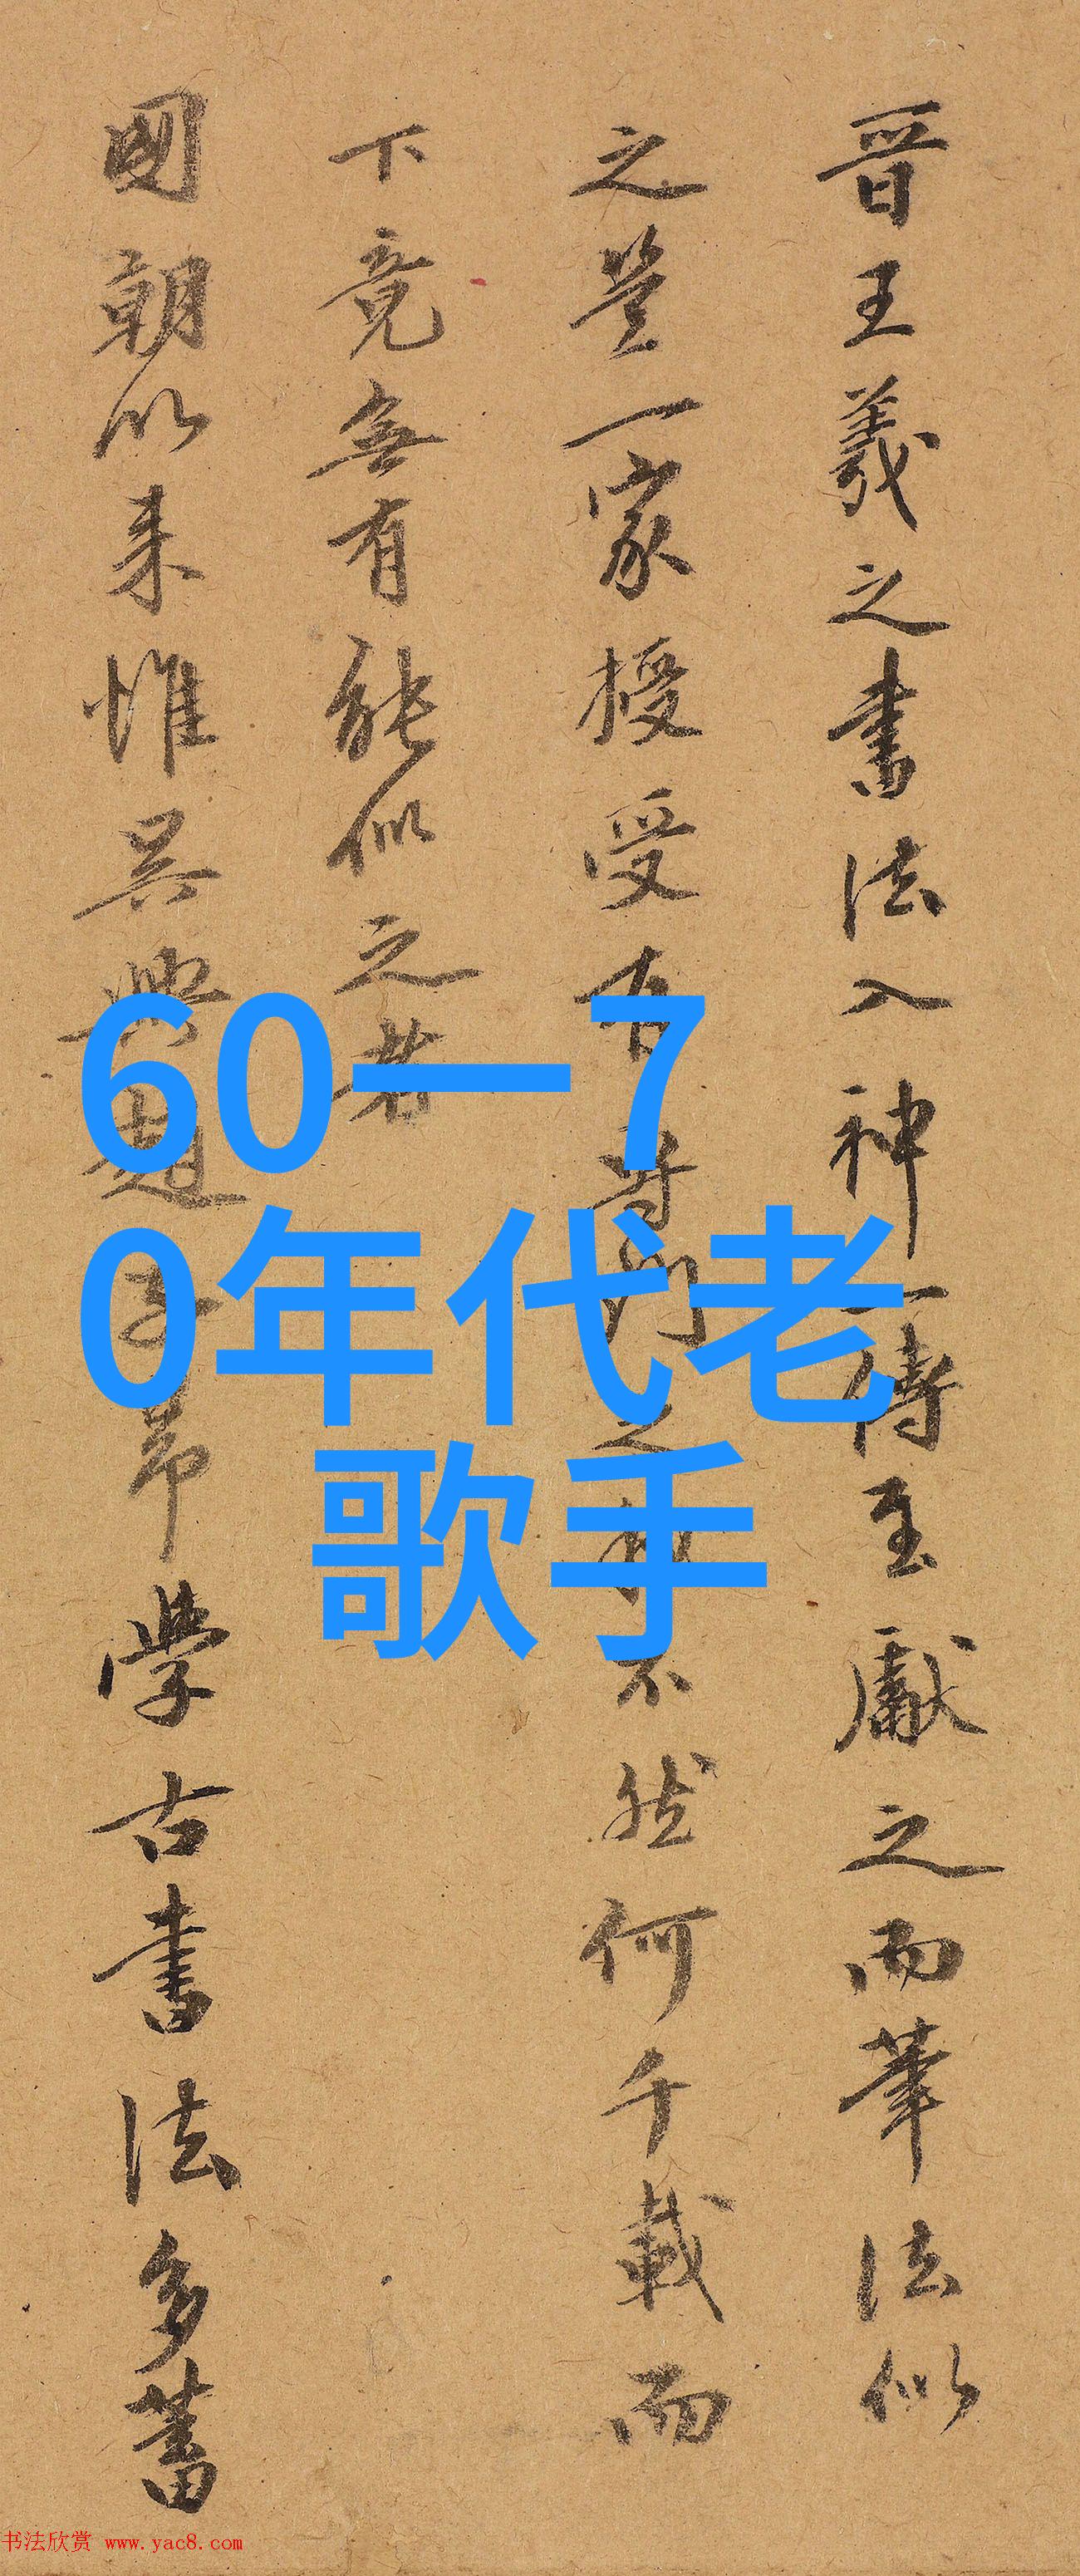 晋王羲之書法入神一傳至獻之而筆法似
之豈一家授受有門之不然何千載而
下竟無有能似之者
國朝以来惟吳興趙子昂學古書法多蓄
60一7
0年代老
歌手
书法欣赏 www.yac8.com